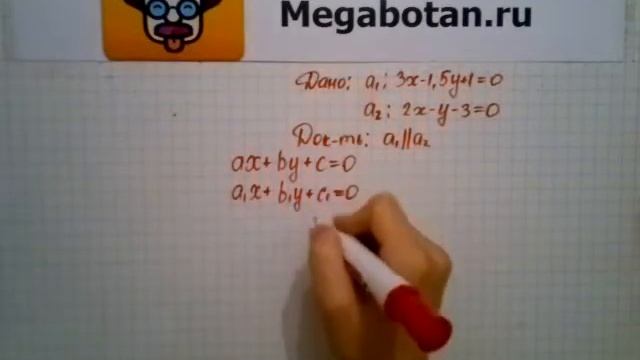 Megabotan.ru
Дано: a₁: 3x-1,5y+1=0
a₂: 2x-y-3=0
Док-ть: a₁||a₂
ax+by+c=0
a₁x+b₁y+c₁=0